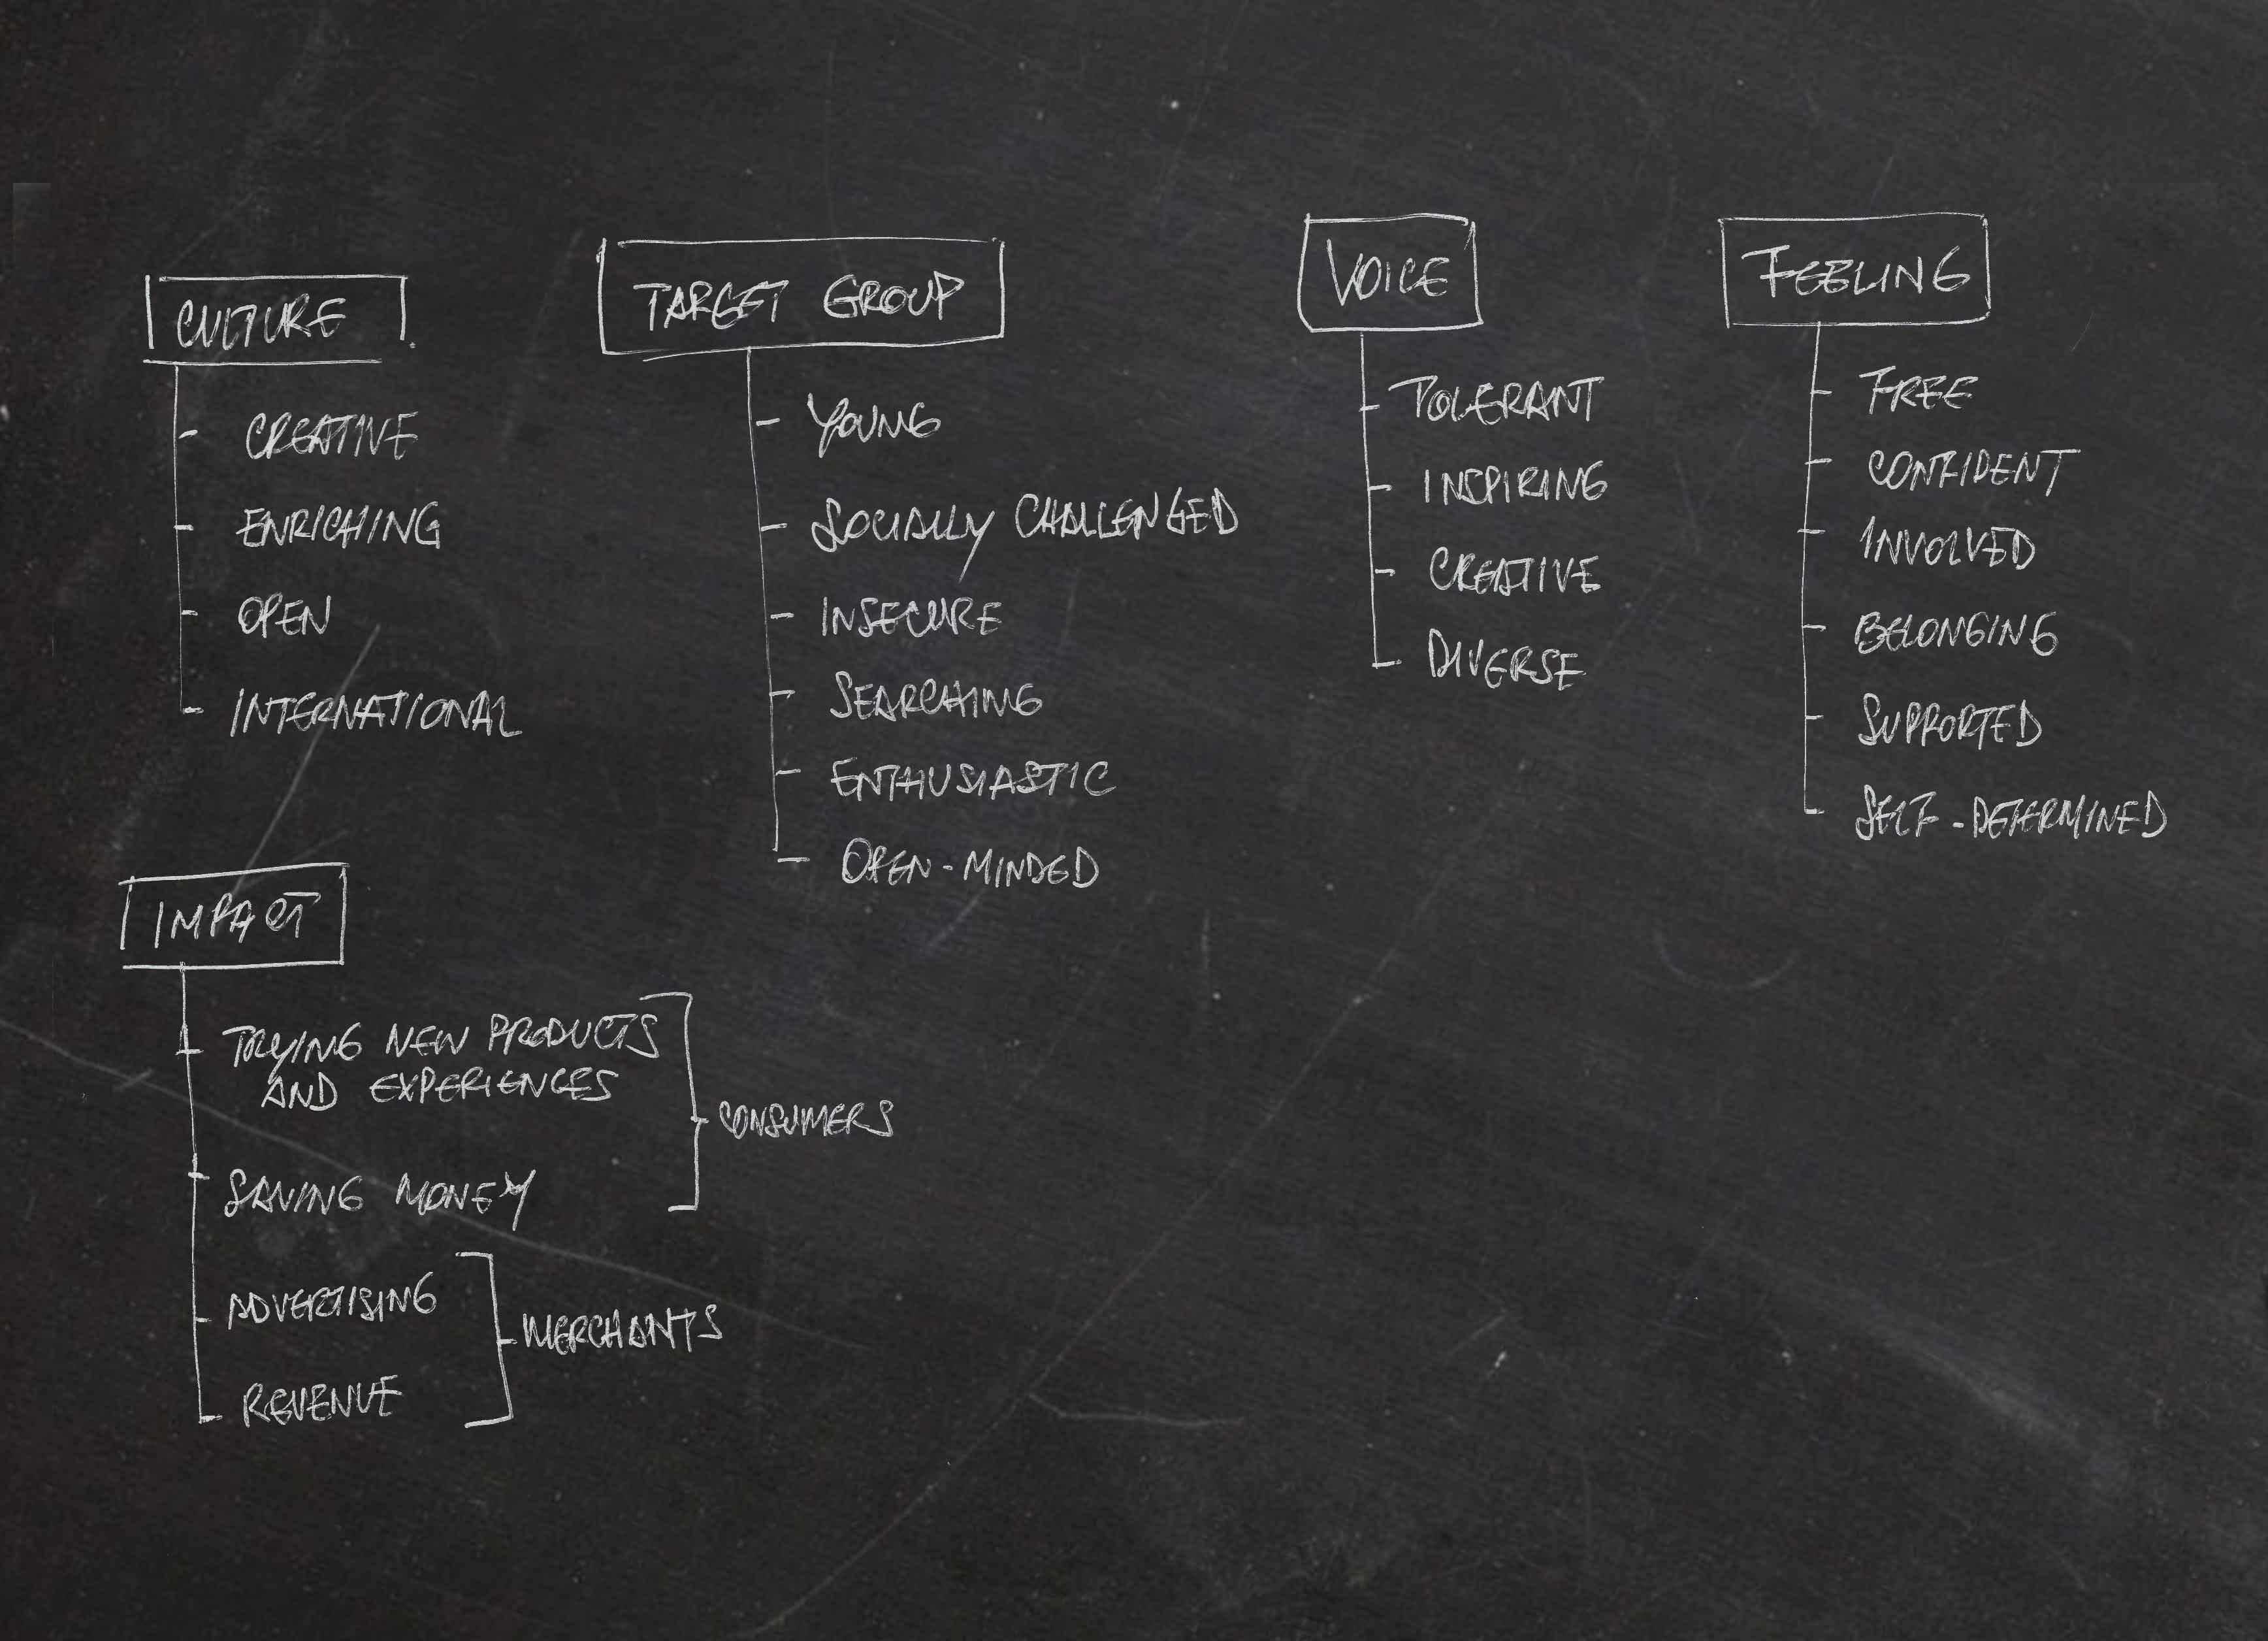 CULTURE
CREATIVE
ENRICHING
OPEN
INTERNATIONAL
TARGET GROUP
YOUNG
SOCIALLY CHALLENGED
INSECURE
SEARCHING
ENTHUSIASTIC
OPEN-MINDED
VOICE
TOLERANT
INSPIRING
CREATIVE
DIVERSE
FEELING
FREE
CONFIDENT
INVOLVED
BELONGING
SUPPORTED
SELF-DETERMINED
IMPACT
TRYING NEW PRODUCTS
AND EXPERIENCES
SAVING MONEY
CONSUMERS
ADVERTISING
REVENUE
MERCHANTS